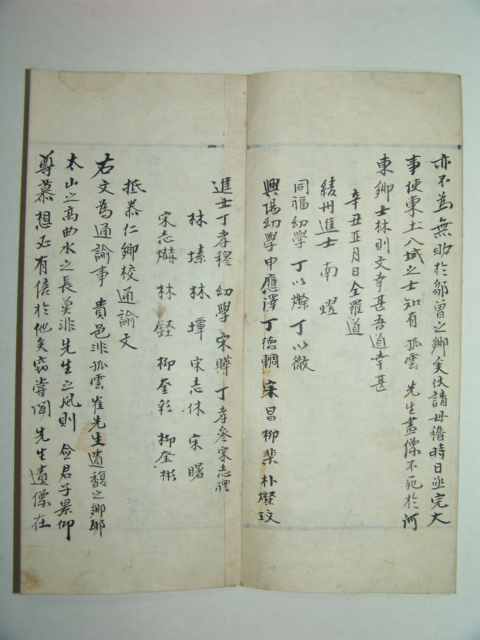 亦不為無助於鄒魯之鄉矣伏請毋稽時日亟完大
事使東土八域之士知有 孤雲 先生畫像不死於河
東鄉士林則文幸甚吾道幸甚
辛丑正月日全羅道
綾州進士 南 燈
同福幼學 丁以燦 丁以徹
興陽幼學 申應澤 丁德輖 宋昌 柳 朴燦玟
進士丁孝穆 幼學 宋 丁孝參 宋志禮
林 塐 林 墠 宋志休 宋 曙
宋志 林 鋌 柳奎彩 柳奎彬
抵泰仁鄉校通諭文
右文為通諭事 貴邑非孤雲崔先生遺馥之鄉耶
太山之高曲水之長莫非先生之風則 僉君子景仰
尊慕想必有倍於他矣竊嘗聞 先生遺像在